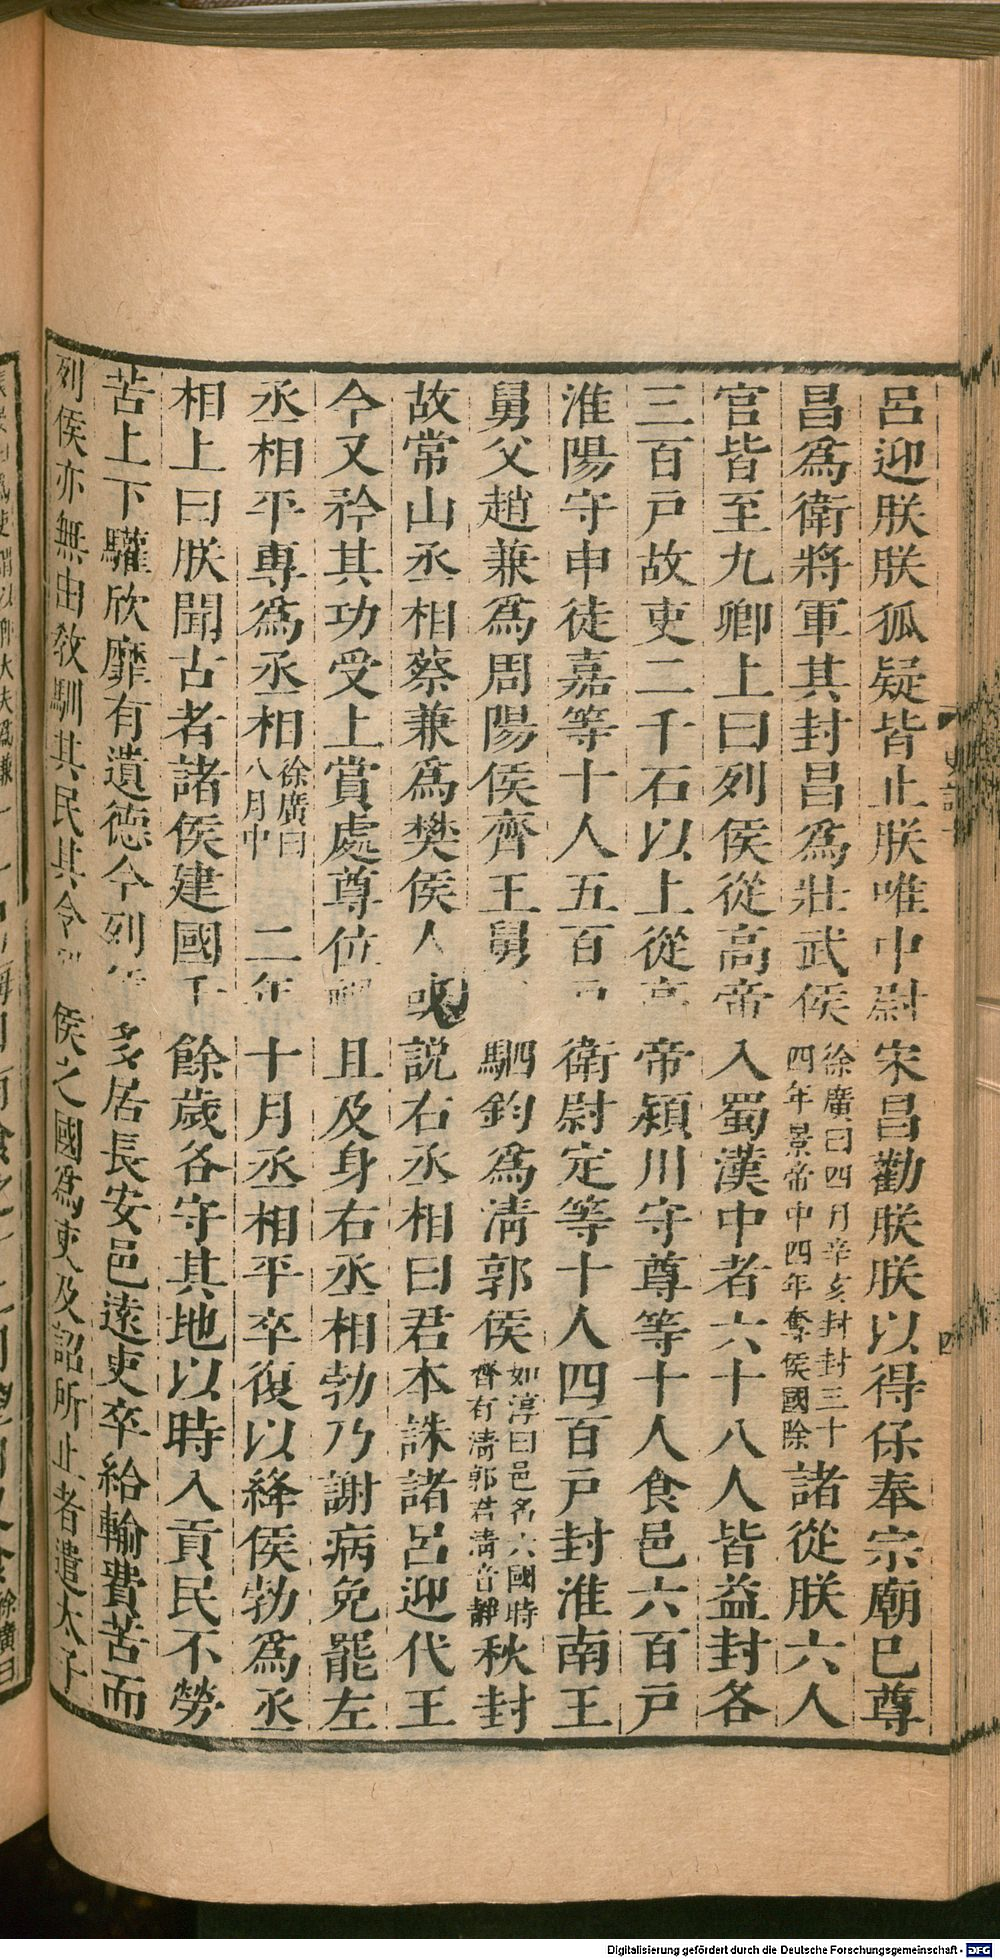 呂迎朕朕狐疑皆止朕唯中尉宋昌勸朕朕以得保奉宗廟已尊
昌爲衛將軍其封昌爲壯武侯徐廣曰四月辛亥封封三十四年景帝中四年奪侯國除諸從朕六人
官皆至九卿上曰列侯從高帝入蜀漢中者六十八人皆益封各
三百戸故吏二千石以上從高帝潁川守尊等十人食邑六百戸
淮陽守申徒嘉等十人五百戸衛尉定等十人四百戸封淮南王
舅父趙兼爲周陽侯齊王舅駟鈞爲淸郭侯如淳曰邑名六國時齊有淸郭君淸音靜秋封
故常山丞相蔡兼爲樊侯人或説右丞相曰君本誅諸呂迎代王
今又矜其功受上賞處尊位禍且及身右丞相勃乃謝病免罷左
丞相平專爲丞相徐廣曰八月中二年十月丞相平卒復以絳侯勃爲丞
相上曰朕聞古者諸侯建國千餘歲各守其地以時入貢民不勞
苦上下驩欣靡有遺德今列侯多居長安邑遠吏卒給輸費苦而
列侯亦無由敎馴其民其令列侯之國爲吏及詔所止者遣太子
史記十
四
Digitalisierung gefördert durch die Deutsche Forschungsgemeinschaft - DFG